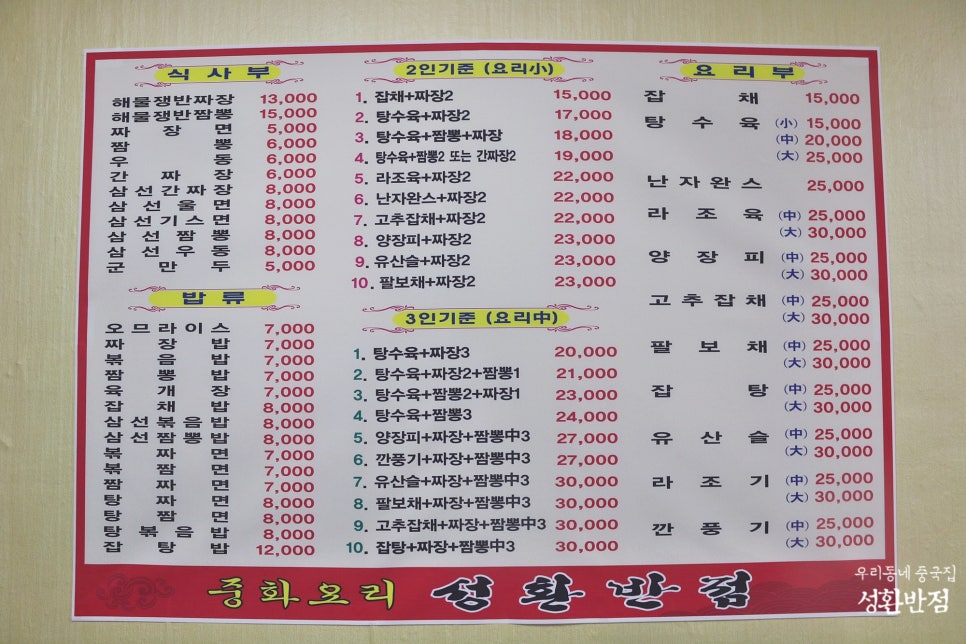 식사부
해물쟁반짜장 13,000
해물쟁반짬뽕 15,000
짜장면 5,000
짬뽕 6,000
우동 6,000
간짜장 6,000
삼선간짜장 8,000
삼선울면 8,000
삼선기스면 8,000
삼선짬뽕 8,000
삼선우동 8,000
군만두 5,000
밥류
오므라이스 7,000
짜장밥 7,000
볶음밥 7,000
짬뽕밥 7,000
육개장 7,000
잡채밥 8,000
삼선볶음밥 8,000
삼선짬뽕밥 8,000
볶짜면 7,000
볶짬면 7,000
짬짜면 7,000
탕짜면 8,000
탕짬면 8,000
탕볶음밥 8,000
잡탕밥 12,000
2인기준 (요리小)
1. 잡채+짜장2 15,000
2. 탕수육+짜장2 17,000
3. 탕수육+짬뽕+짜장 18,000
4. 탕수육+짬뽕2 또는 간짜장2 19,000
5. 라조육+짜장2 22,000
6. 난자완스+짜장2 22,000
7. 고추잡채+짜장2 22,000
8. 양장피+짜장2 23,000
9. 유산슬+짜장2 23,000
10. 팔보채+짜장2 23,000
3인기준 (요리中)
1. 탕수육+짜장3 20,000
2. 탕수육+짜장2+짬뽕1 21,000
3. 탕수육+짬뽕2+짜장1 23,000
4. 탕수육+짬뽕3 24,000
5. 양장피+짜장+짬뽕中3 27,000
6. 깐풍기+짜장+짬뽕中3 27,000
7. 유산슬+짜장+짬뽕中3 30,000
8. 팔보채+짜장+짬뽕中3 30,000
9. 고추잡채+짜장+짬뽕中3 30,000
10. 잡탕+짜장+짬뽕中3 30,000
요리부
잡채 15,000
탕수육 (小) 15,000
(中) 20,000
(大) 25,000
난자완스 25,000
라조육 (中) 25,000
(大) 30,000
양장피 (中) 25,000
(大) 30,000
고추잡채 (中) 25,000
(大) 30,000
팔보채 (中) 25,000
(大) 30,000
잡탕 (中) 25,000
(大) 30,000
유산슬 (中) 25,000
(大) 30,000
라조기 (中) 25,000
(大) 30,000
깐풍기 (中) 25,000
(大) 30,000
중화요리 성환반점
우리동네 중국집
성환반점